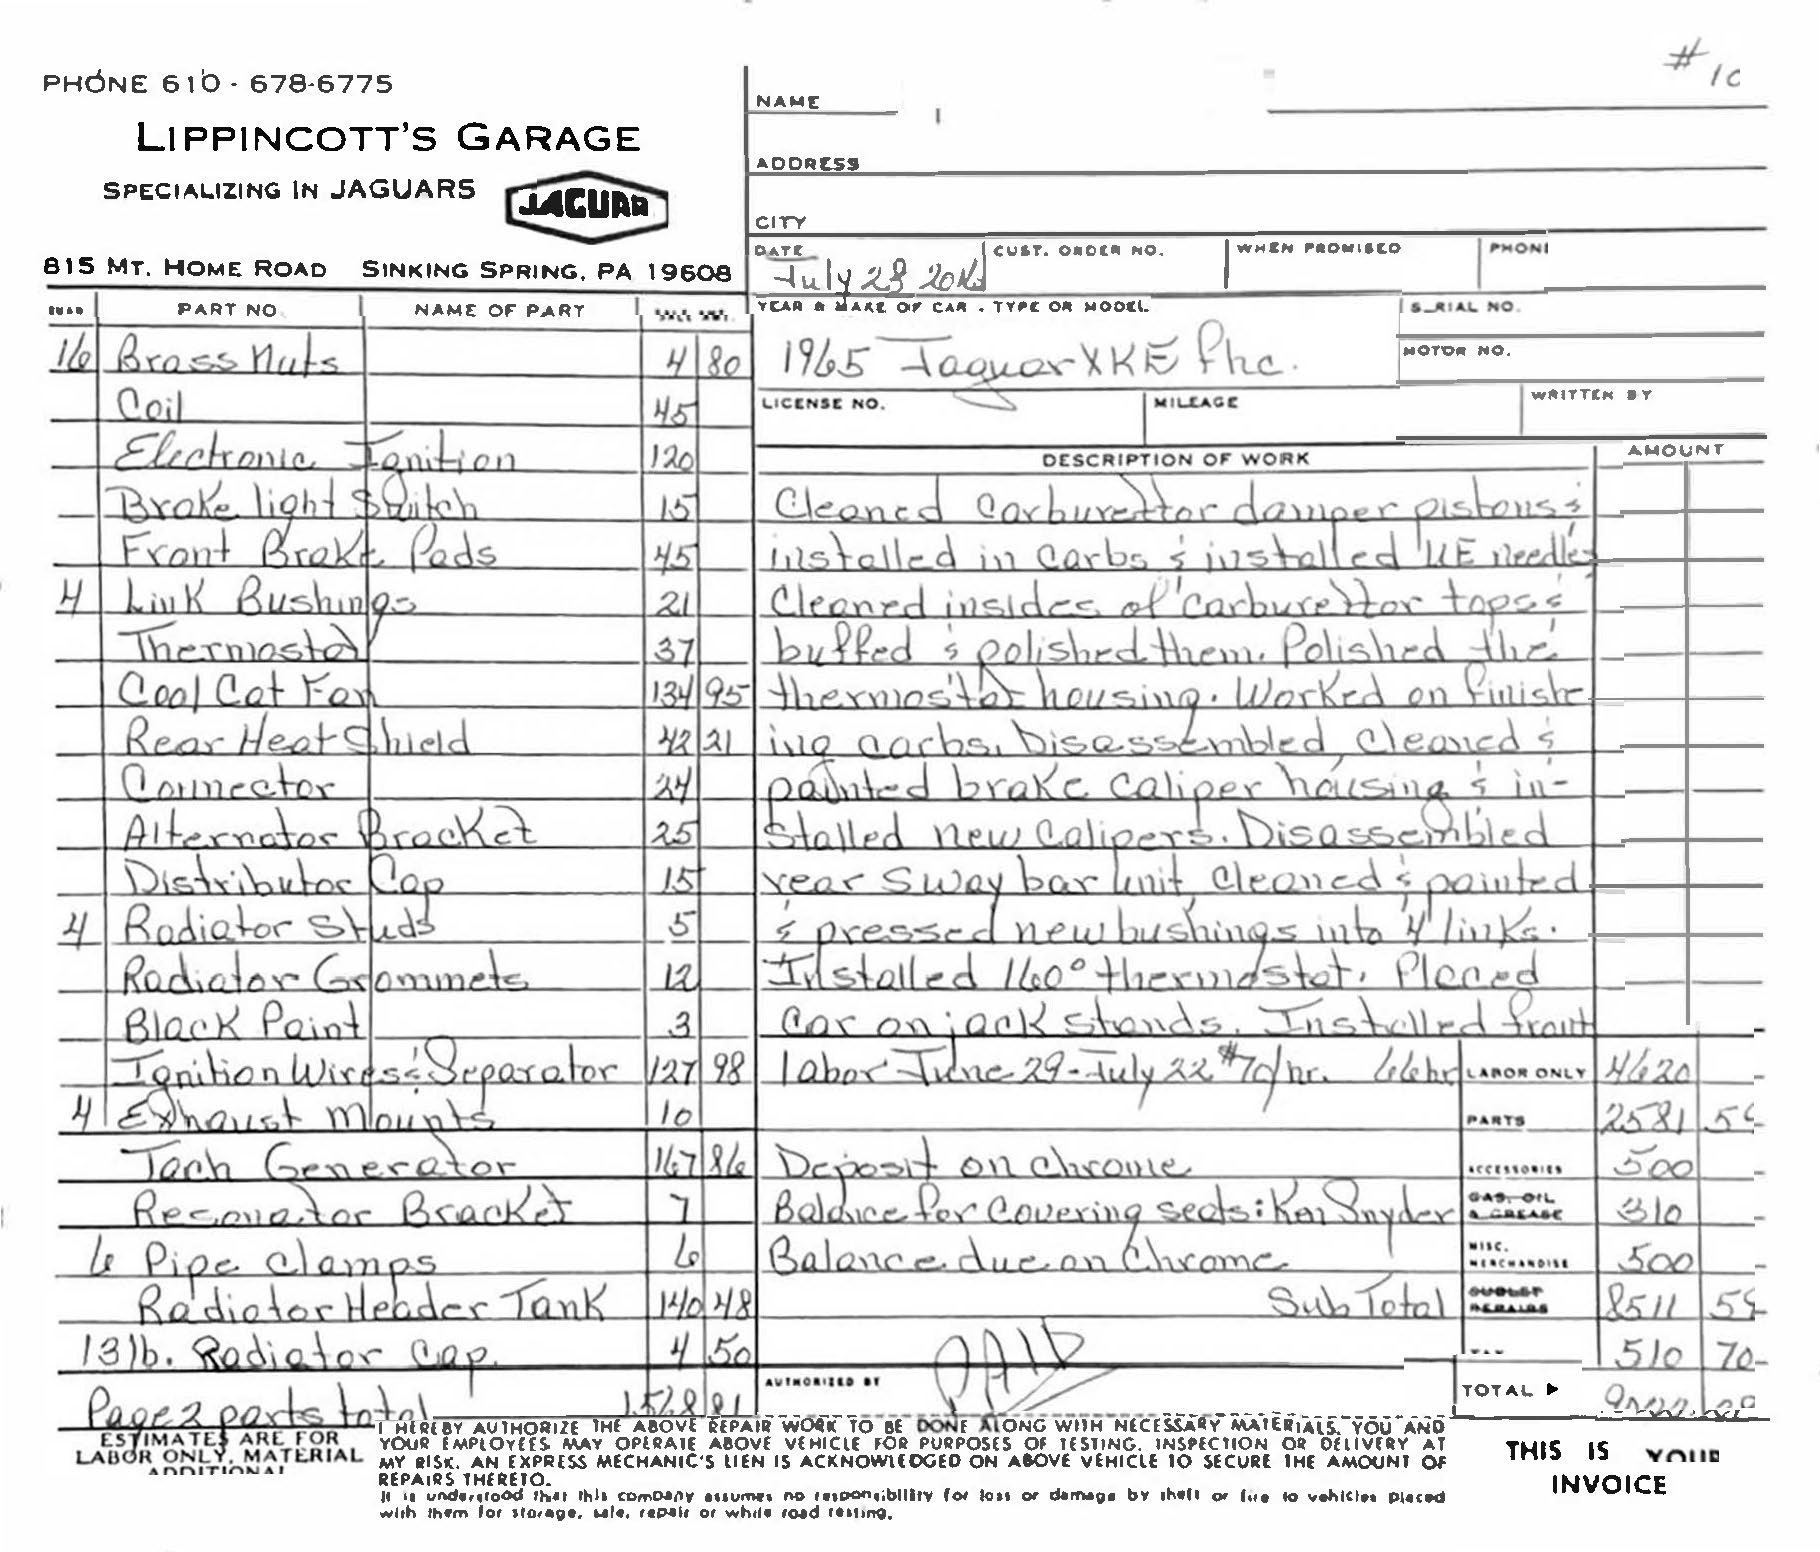 # 10
PHONE 610 - 678-6775
LIPPINCOTT'S GARAGE
SPECIALIZING IN JAGUARS
JAGUAR
815 MT. HOME ROAD SINKING SPRING, PA 19608
NAME
ADDRESS
CITY
DATE CUST. ORDER NO. WHEN PROMISED PHON
July 23
YEAR & MAKE OF CAR - TYPE OR MODEL. SERIAL NO.
1965 Jaguar XKE fhc.
MOTOR NO.
LICENSE NO. MILEAGE WRITTEN BY
PART NO. NAME OF PART
16 Brass Nuts 4 80
Coil 45
Electronic Ignition 120
Brake light Switch 15
Front Brake Pads 45
4 Link Bushings 21
Thermostat 37
Cool Cat Fan 134 95
Rear Heat Shield 42 21
Connector 24
Alternator Bracket 25
Distributor Cap 15
4 Radiator Studs 5
Radiator Grommets 12
Black Paint 3
Ignition Wires & Separator 127 98
4 Exhaust Mounts 10
Tach Generator 167 86
Resonator Bracket 7
6 Pipe Clamps 6
Radiator Header Tank 140 48
13 lb. Radiator Cap. 4 50
Page 2 parts total 1528 81
DESCRIPTION OF WORK AMOUNT
Cleaned carburettor damper pistons &
installed in carbs & installed UE needles
Cleaned insides of carburettor tops &
buffed & polished them. Polished the
thermostat housing. Worked on finish
ing carbs. Disassembled, cleaned &
painted brake caliper housing & in-
stalled new calipers. Disassembled
rear sway bar unit, cleaned & painted
& pressed new bushings into 4 links.
Installed 160° thermostat. Placed
car on jack stands. Installed front
labor June 29 - July 22 $70/hr. 66 hr LABOR ONLY 4620
PARTS 2581 5
Deposit on chrome ACCESSORIES 500
Balance for covering seats: Ken Snyder GAS, OIL & GREASE 310
Balance due on Chrome MISC. MERCHANDISE 500
Sub Total SUBLET REPAIRS 8511 5
TAX 510 70
PAID
AUTHORIZED BY TOTAL
ESTIMATES ARE FOR
LABOR ONLY, MATERIAL
ADDITIONAL
I HEREBY AUTHORIZE THE ABOVE REPAIR WORK TO BE DONE ALONG WITH NECESSARY MATERIALS. YOU AND
YOUR EMPLOYEES MAY OPERATE ABOVE VEHICLE FOR PURPOSES OF TESTING, INSPECTION OR DELIVERY AT
MY RISK. AN EXPRESS MECHANIC'S LIEN IS ACKNOWLEDGED ON ABOVE VEHICLE TO SECURE THE AMOUNT OF
REPAIRS THERETO.
It is understood that this company assumes no responsibility for loss or damage by theft or fire to vehicles placed
with them for storage, sale, repair or while road testing.
THIS IS YOUR
INVOICE